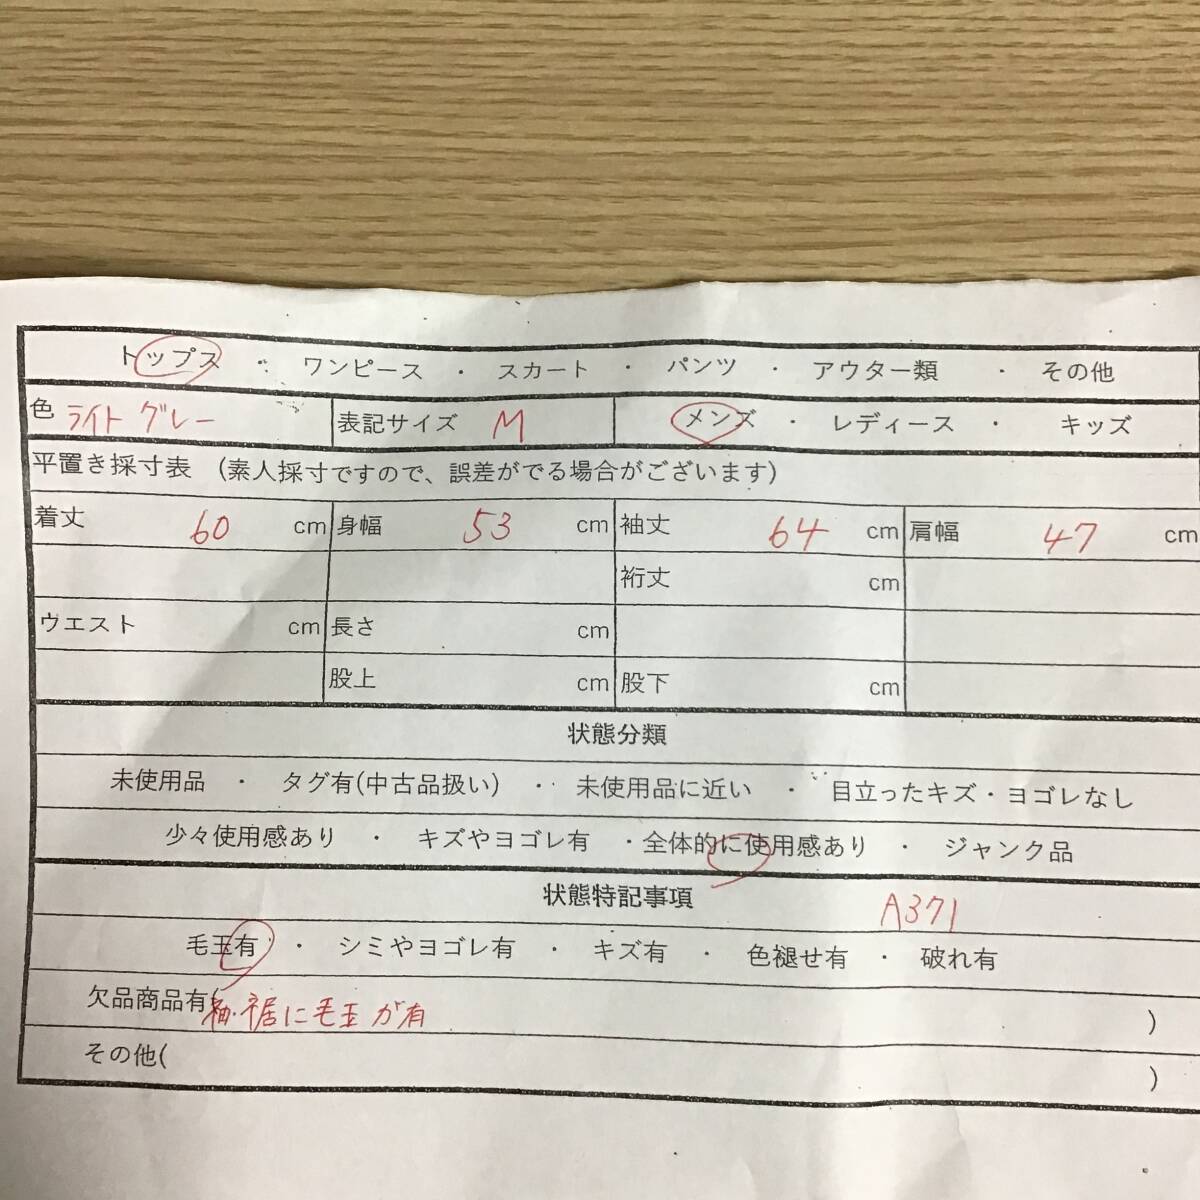 トップス ・ ワンピース ・ スカート ・ パンツ ・ アウター類 ・ その他
色 ライトグレー 表記サイズ M メンズ ・ レディース ・ キッズ
平置き採寸表 (素人採寸ですので、誤差がでる場合がございます)
着丈 60 cm 身幅 53 cm 袖丈 64 cm 肩幅 47 cm
裄丈 cm
ウエスト cm 長さ cm
股上 cm 股下 cm
状態分類
未使用品 ・ タグ有(中古品扱い) ・ 未使用品に近い ・ 目立ったキズ・ヨゴレなし
少々使用感あり ・ キズやヨゴレ有 ・全体的に使用感あり ・ ジャンク品
状態特記事項 A371
毛玉有 ・ シミやヨゴレ有 ・ キズ有 ・ 色褪せ有 ・ 破れ有
欠品商品有( 袖・裾に毛玉が有 )
その他( )